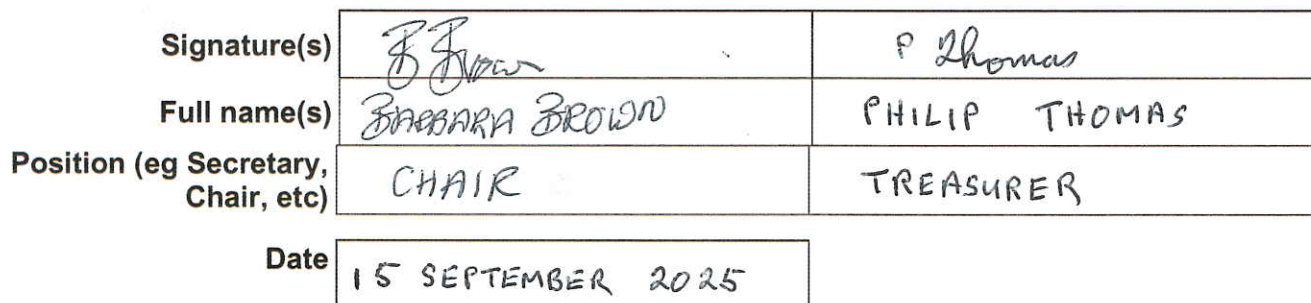 Signature(s) B Brown P Thomas
Full name(s) BARBARA BROWN PHILIP THOMAS
Position (eg Secretary,
Chair, etc) CHAIR TREASURER
Date 15 SEPTEMBER 2025